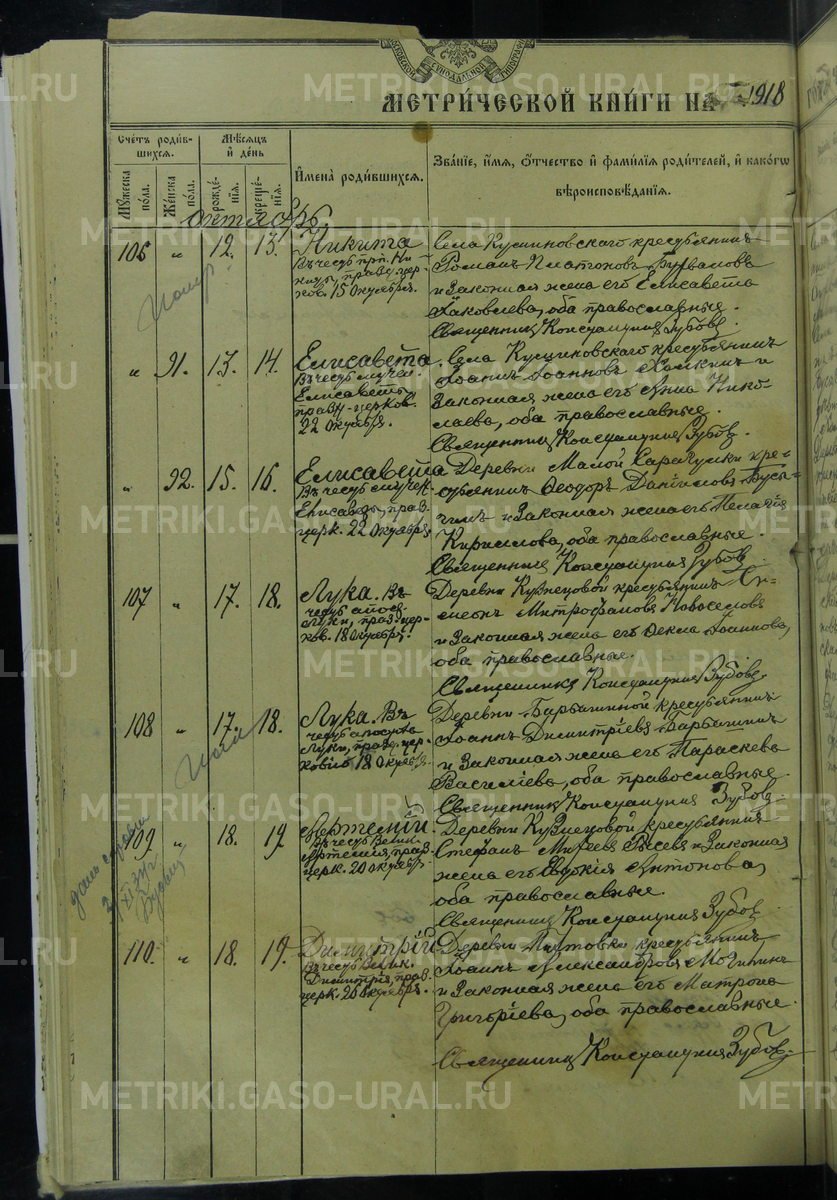 МОСКОВСКОЙ СѴНОДАЛЬНОЙ ТИПОГРАФ
МЕТРИ́ЧЕСКОЙ КНИ́ГИ НА 1918
Сче́тъ роди́в-
шихся.
Мѣ́сяцъ
и҆ де́нь
Му́жеска по́ла.
Же́нска по́ла.
рожде́-
нїя.
креще́-
нїя.
И҆мена̀ роди́вшихся.
Зва́нїе, и҆́мя, ѻ҆́тчество и҆ фами́лїя роди́телей, и҆ како́гѡ
вѣроисповѣ́данїя.
октябрь
106 " 12. 13. Никита
Въ честь прп. Ни-
киты, празд. цер-
ков. 15 Октября.
Села Кусиновскаго крестьянинъ
Романъ Платоновъ
и законная жена его Елисавета
Іаковлева, оба православные.
Священникъ Константинъ Зубовъ.
" 91. 13. 14. Елисавета
Въ честь мучен.
Елисаветы,
празд. церков.
22 Октября.
Села Кусиновскаго крестьянинъ
Іоаннъ Іоанновъ и
законная жена его Анна Нико-
лаева, оба православные.
Священникъ Константинъ Зубовъ.
" 92. 15. 16. Елисавета
Въ честь мучен.
Елисаветы, празд.
церк. 22 Октября.
Деревни Малой кре-
стьянинъ Ѳеодоръ Даніиловъ Бусы-
гинъ и законная жена его Пелагія
Кириллова, оба православные.
Священникъ Константинъ Зубовъ.
107 " 17. 18. Лука. Въ
честь апост.
Луки, празд. цер-
ков. 18 Октября.
Деревни Кузнецовой крестьянинъ Си-
меонъ Митрофановъ Новоселовъ
и законная жена его Ѳекла Іоаннова,
оба православные.
Священникъ Константинъ Зубовъ.
108 " 17. 18. Лука. Въ
честь апостола
Луки, празд. цер-
ковью 18 Октября.
Деревни Барбашиной крестьянинъ
Іоаннъ Димитріевъ Барбашинъ
и законная жена его Параскева
Василіева, оба православные.
Священникъ Константинъ Зубовъ.
109 " 18. 19 Артемій.
Въ честь Велик.
Артемія, празд.
церк. 20 октября.
Деревни Кузнецовой крестьянинъ
Стефанъ и законная
жена его Евдокія Антонова,
оба православные.
Священникъ Константинъ Зубовъ.
110. " 18. 19. Димитрій
Въ честь Велик.
Димитрія, празд.
церк. 26 октября.
Деревни крестьянинъ
Іоаннъ Александровъ
и законная жена его Матрона
Григоріева, оба православные.
Священникъ Константинъ Зубовъ.
METRIKI.GASO-URAL.RU